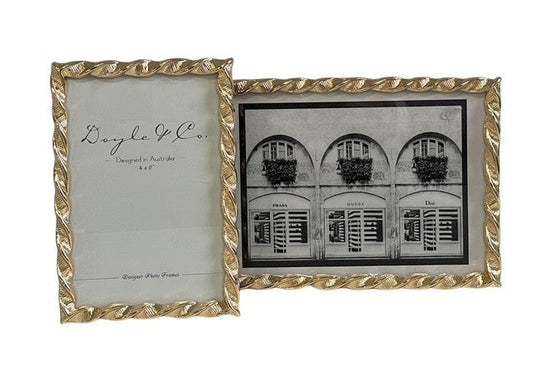 Doyle & Co.
Designed in Australia
4 x 6"
Designer Photo Frames
PRADA
GUCCI
Dior